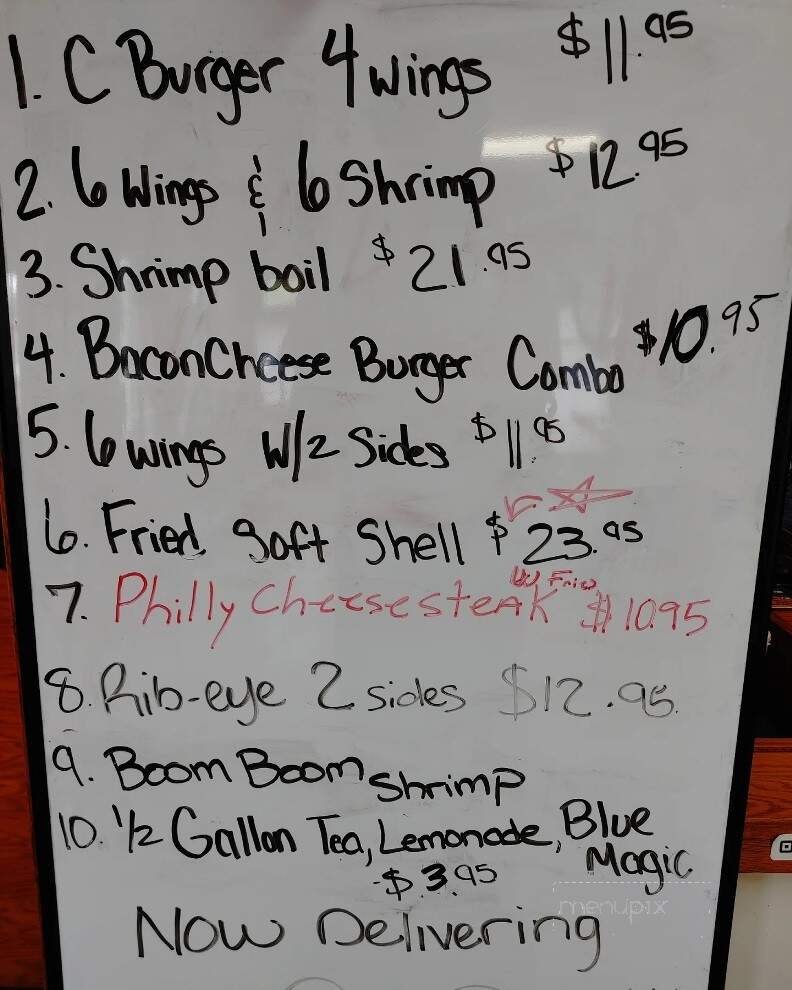 1. C Burger 4 wings $11.95
2. 6 Wings & 6 Shrimp $12.95
3. Shrimp boil $21.95
4. BaconCheese Burger Combo $10.95
5. 6 wings W/2 Sides $11.95
6. Fried Soft Shell $23.95
7. Philly Cheesesteak W Fries $10.95
8. Rib-eye 2 sides $12.95
9. Boom Boom Shrimp
10. 1/2 Gallon Tea, Lemonade, Blue Magic
-$3.95
Now Delivering
menupix